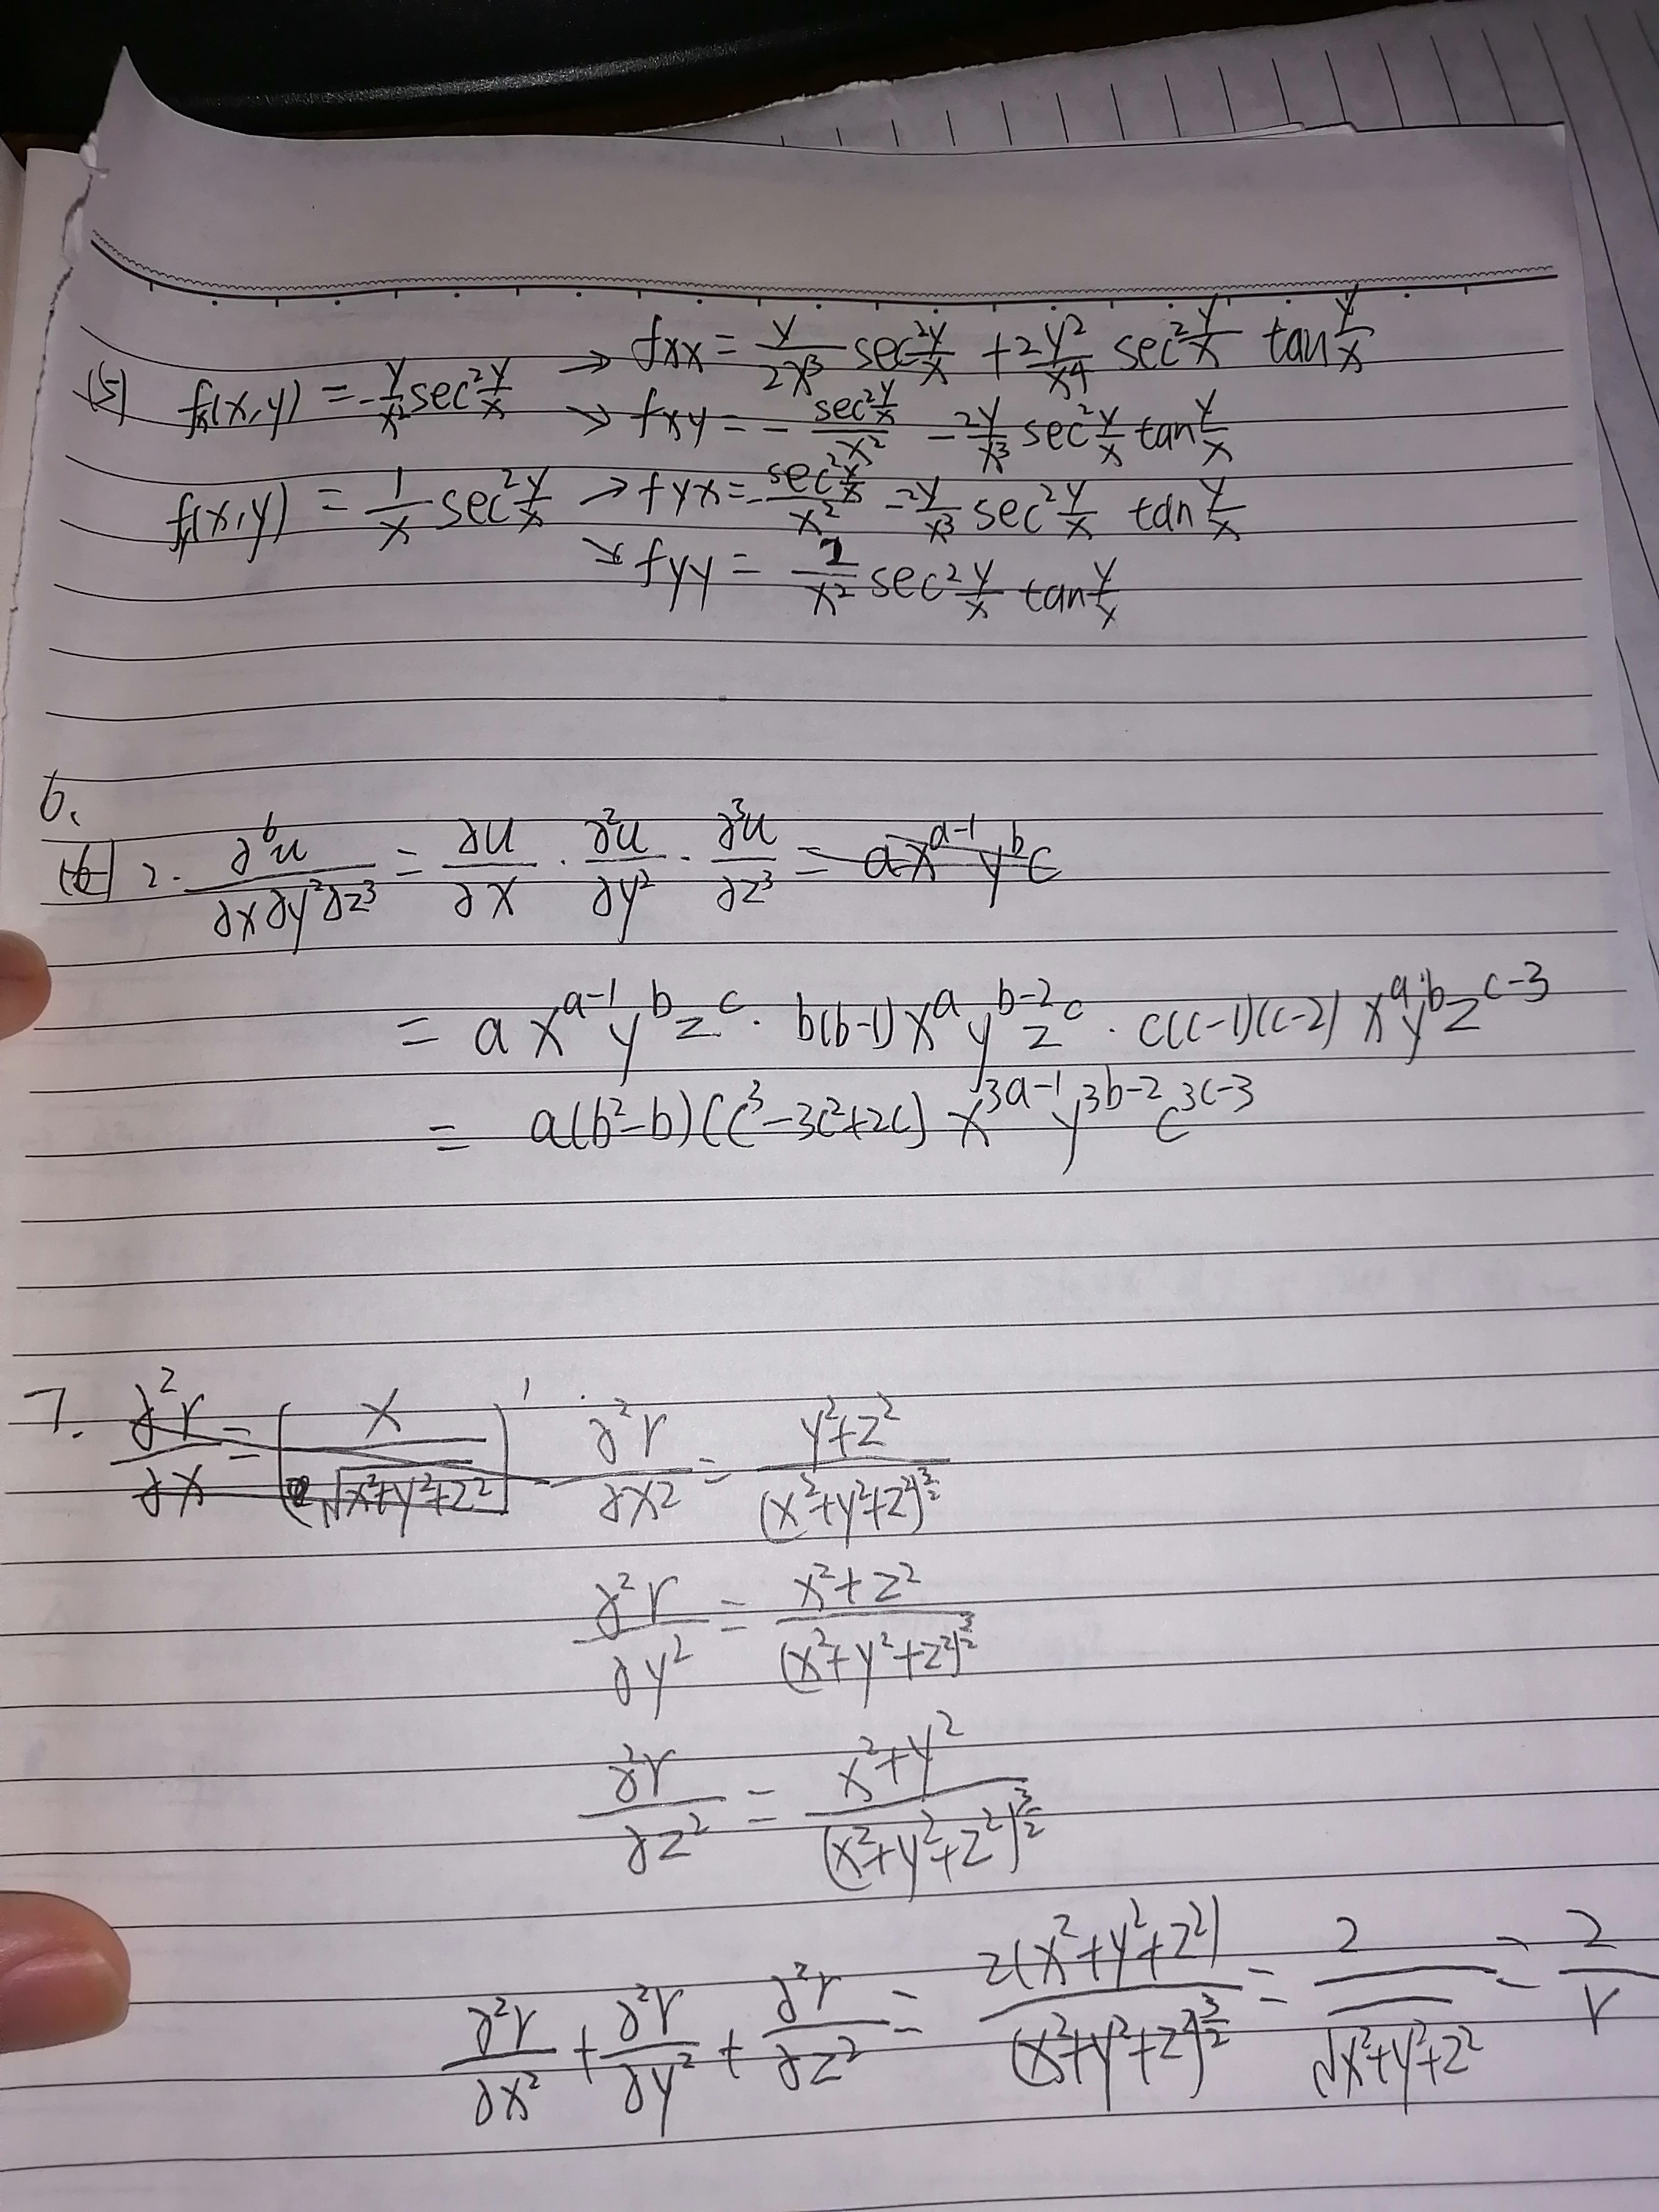 (5) fx(x,y) = -y/x² sec² y/x → fxx = y/2x³ sec² y/x + 2y²/x⁴ sec² y/x tan y/x
↘ fxy = - sec² y/x / x² - 2y/x³ sec² y/x tan y/x
fy(x,y) = 1/x sec² y/x → fyx = - sec² y/x / x² - 2y/x³ sec² y/x tan y/x
↘ fyy = 2/x² sec² y/x tan y/x
6.
2. ∂⁶u/∂x∂y²∂z³ = ∂u/∂x · ∂²u/∂y² · ∂³u/∂z³ = ax^(a-1) y^b c
= a x^(a-1) y^b z^c · b(b-1) x^a y^(b-2) z^c · c(c-1)(c-2) x^a y^b z^(c-3)
= a(b²-b)(c³-3c²+2c) x^(3a-1) y^(3b-2) c^(3c-3)
7. ∂²r/∂x = (x/√(x²+y²+z²))' ∂²r/∂x² = (y²+z²)/(x²+y²+z²)^(3/2)
∂²r/∂y² = (x²+z²)/(x²+y²+z²)^(3/2)
∂²r/∂z² = (x²+y²)/(x²+y²+z²)^(3/2)
∂²r/∂x² + ∂²r/∂y² + ∂²r/∂z² = 2(x²+y²+z²)/(x²+y²+z²)^(3/2) = 2/√(x²+y²+z²) = 2/r